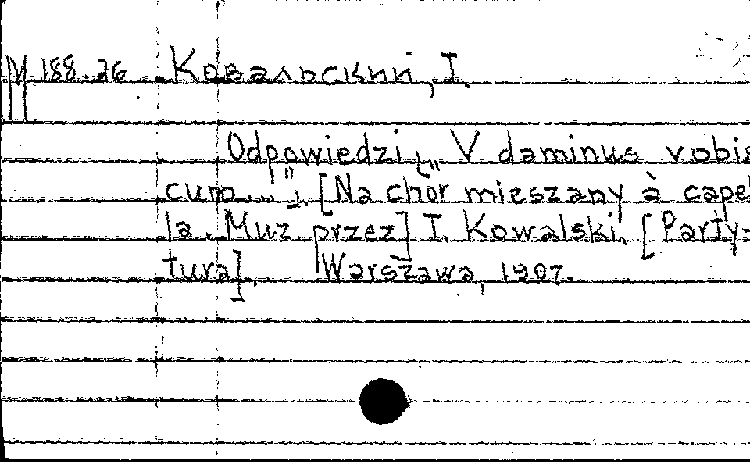 М 188.26 Ковальский, I.
Odpowiedzi „V daminus vobis
cum..." [Na chór mieszany à capel
la. Muz przez] I. Kowalski. [Party-
tura]. Warszawa, 1907.